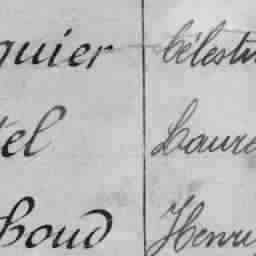 quier Célestin
tel Laure
houd Henry